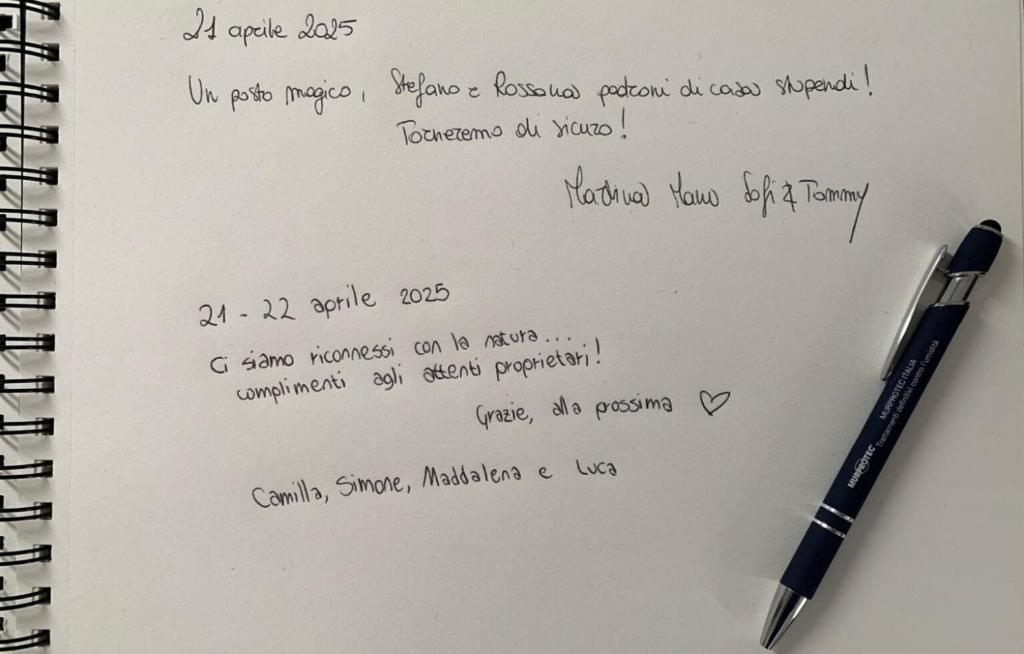 21 aprile 2025
Un posto magico, Stefano e Rossana padroni di casa stupendi!
Torneremo di sicuro!
Martina Manu Sofi & Tommy
21 - 22 aprile 2025
Ci siamo riconnessi con la natura...
complimenti agli attenti proprietari!
Grazie, alla prossima ♡
Camilla, Simone, Maddalena e Luca
MURPROTEC
MURPROTEC ITALIA
Trattamenti definitivi contro l'umidità